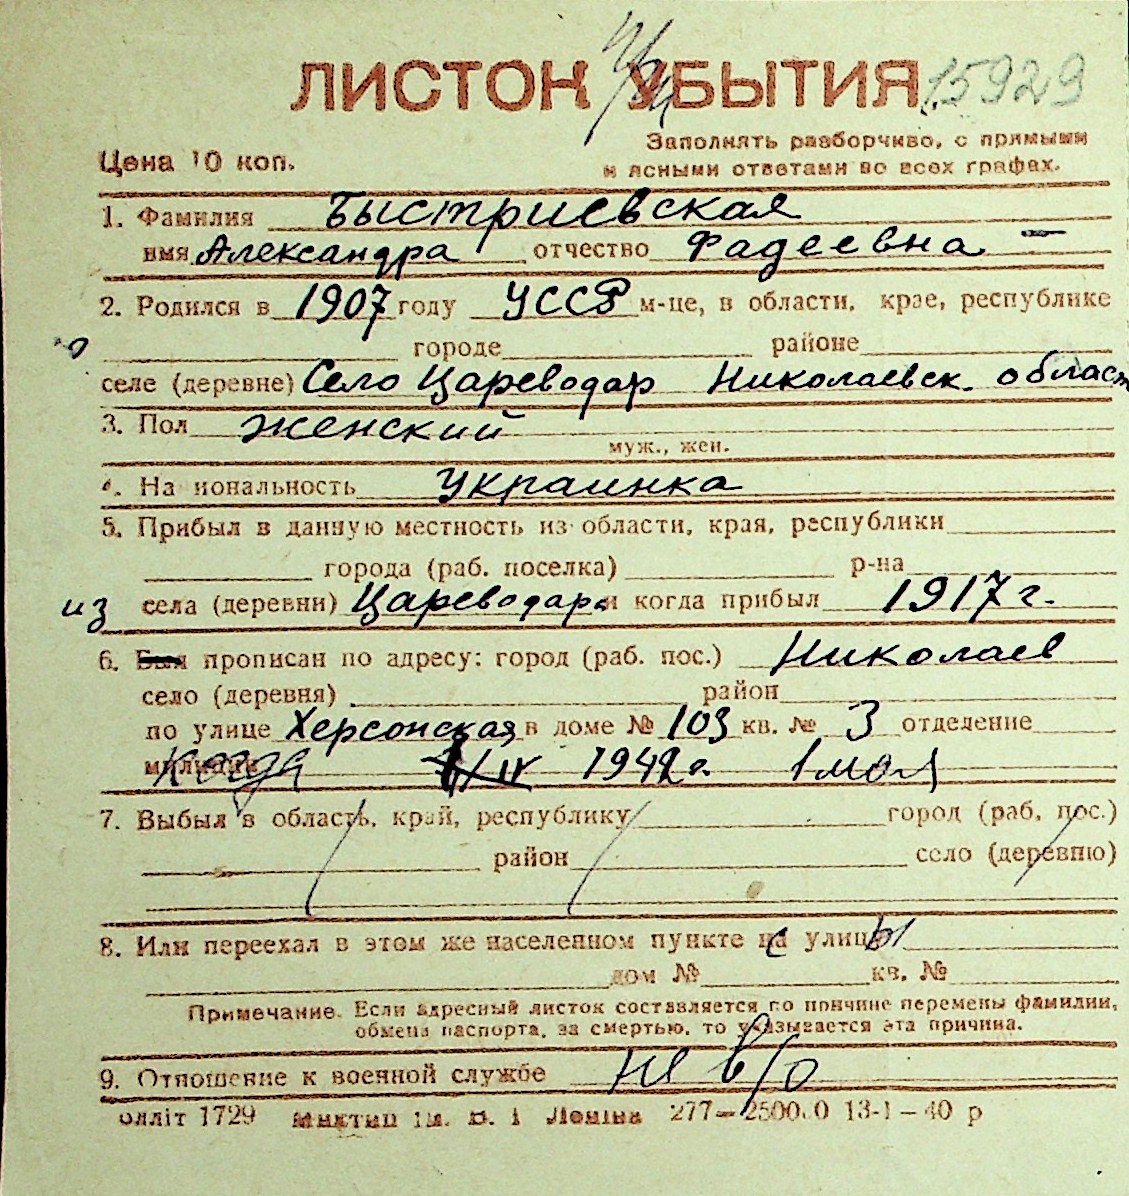 ЛИСТОК УБЫТИЯ 15929
Цена 10 коп.
Заполнять разборчиво, с прямыми
и ясными ответами во всех графах.
1. Фамилия Быстриевская
имя Александра отчество Фадеевна
2. Родился в 1907 году УССР м-це, в области, крае, республике
городе районе
селе (деревне) Село Цареводар Николаевск. област
3. Пол женский
муж., жен.
4. Национальность Украинка
5. Прибыл в данную местность из области, края, республики
города (раб. поселка) р-на
из села (деревни) Цареводар и когда прибыл 1917 г.
6. Был прописан по адресу: город (раб. пос.) Николаев
село (деревня) район
по улице Херсонская в доме № 103 кв. № 3 отделение
милиции Когда IV 1942 г. 1 мая
7. Выбыл в область, край, республику город (раб. пос.)
район село (деревню)
8. Или переехал в этом же населенном пункте с улицы
дом № кв. №
Примечание. Если адресный листок составляется по причине перемены фамилии,
обмена паспорта, за смертью, то указывается эта причина.
9. Отношение к военной службе не в/о
олліт 1729 Миктип ім. В. І Леніна 277—25000 13-1—40 р